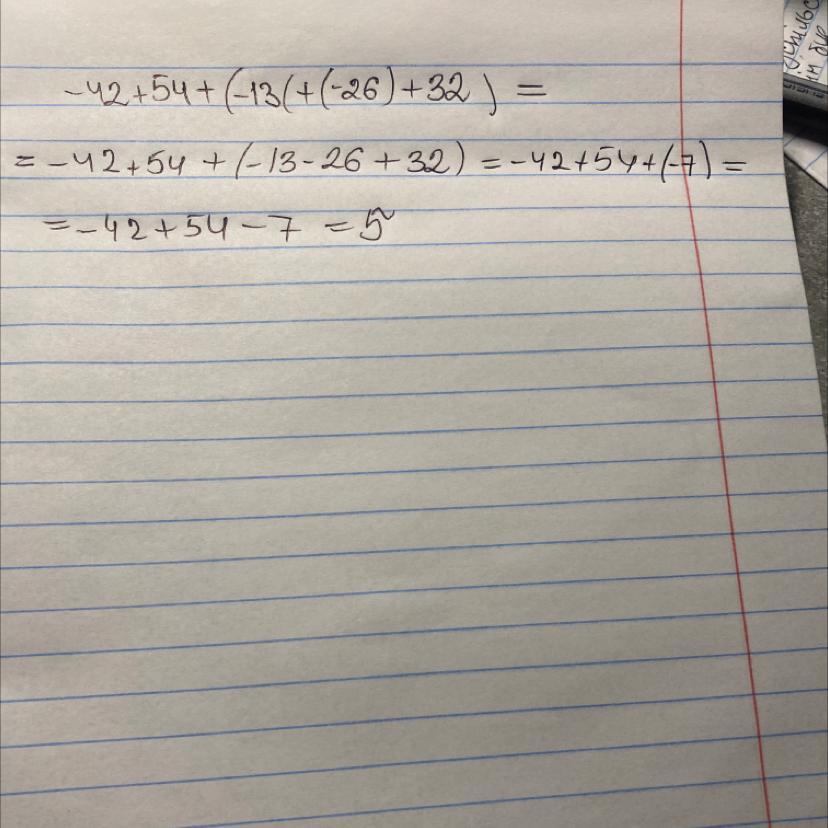 -42+54+(-13(+(-26)+32) =
= -42+54 + (-13-26+32) = -42+54+(-7) =
= -42+54-7 = 5